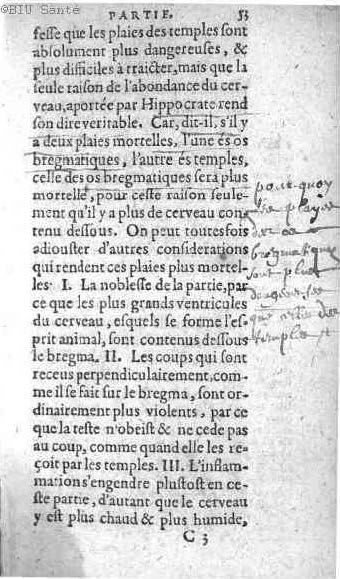 ©BIU Santé
PARTIE. 53
fesse que les plaies des temples sont
absolument plus dangereuses, &
plus difficiles à traicter, mais que la
seule raison de l'abondance du cer-
veau, aportée par Hippocrate rend
son dire veritable. Car, dit-il, s'il y
a deux plaies mortelles, l'une és os
bregmatiques, l'autre és temples,
celle des os bregmatiques sera plus
mortelle, pour ceste raison seule-
ment qu'il y a plus de cerveau con-
tenu dessous. On peut toutesfois
adiouster d'autres considerations
qui rendent ces plaies plus mortel-
les. I. La noblesse de la partie, par
ce que les plus grands ventricules
du cerveau, esquels se forme l'es-
prit animal, sont contenus dessous
le bregma. II. Les coups qui sont
receus perpendiculairement, com-
me il se fait sur le bregma, sont or-
dinairement plus violents, par ce
que la teste n'obeist & ne cede pas
au coup, comme quand elle les re-
çoit par les temples. III. L'inflam-
mations'engendre plustost en ce-
ste partie, d'autant que le cerveau
y est plus chaud & plus humide,
C 3
pourquoy
playes
bregmatiques
sont plus
dangereuses
que celles des
temples